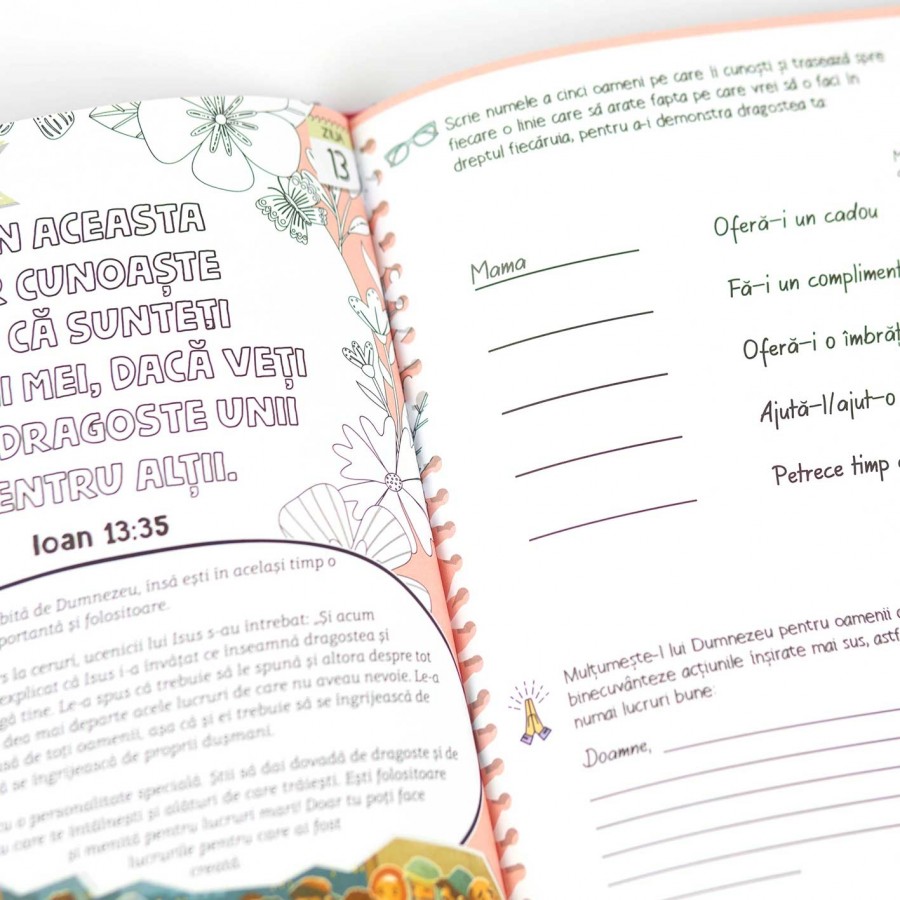 ZUA
13
N ACEASTA
R CUNOAȘTE
CĂ SUNTEȚI
I MEI, DACĂ VEȚI
DRAGOSTE UNII
ENTRU ALȚII.
Ioan 13:35
bită de Dumnezeu, însă ești în același timp o
portantă și folositoare.
rs la ceruri, ucenicii lui Isus s-au întrebat: „Și acum
explicat că Isus i-a învățat ce înseamnă dragostea și
gă tine. Le-a spus că trebuie să le spună și altora despre tot
dea mai departe acele lucruri de care nu aveau nevoie. Le-a
asă de toți oamenii, așa că și ei trebuie să se îngrijească de
ă se îngrijească de proprii dușmani.
cu o personalitate specială. Știi să dai dovadă de dragoste și de
u care te întâlnești și alături de care trăiești. Ești folositoare
și menită pentru lucruri mari! Doar tu poți face
lucrurile pentru care ai fost
creată.
Scrie numele a cinci oameni pe care îi cunoști și trasează spre
fiecare o linie care să arate fapta pe care vrei să o faci în
dreptul fiecăruia, pentru a-i demonstra dragostea ta:
Mama
Oferă-i un cadou
Fă-i un compliment
Oferă-i o îmbrăț
Ajută-l/ajut-o
Petrece timp
Mulțumește-I lui Dumnezeu pentru oamenii
binecuvânteze acțiunile înșirate mai sus, astf
numai lucruri bune:
Doamne,